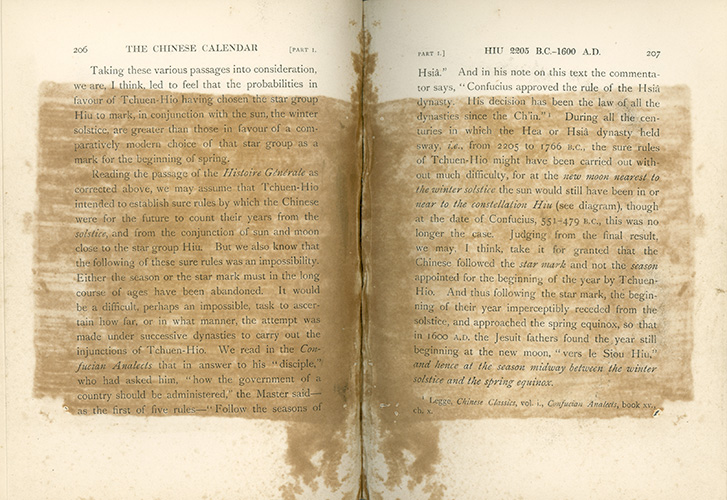 206 THE CHINESE CALENDAR [PART I.
Taking these various passages into consideration,
we are, I think, led to feel that the probabilities in
favour of Tchuen-Hio having chosen the star group
Hiu to mark, in conjunction with the sun, the winter
solstice, are greater than those in favour of a com-
paratively modern choice of that star group as a
mark for the beginning of spring.
Reading the passage of the Histoire Générale as
corrected above, we may assume that Tchuen-Hio
intended to establish sure rules by which the Chinese
were for the future to count their years from the
solstice, and from the conjunction of sun and moon
close to the star group Hiu. But we also know that
the following of these sure rules was an impossibility.
Either the season or the star mark must in the long
course of ages have been abandoned. It would
be a difficult, perhaps an impossible, task to ascer-
tain how far, or in what manner, the attempt was
made under successive dynasties to carry out the
injunctions of Tchuen-Hio. We read in the Con-
fucian Analects that in answer to his "disciple,"
who had asked him, "how the government of a
country should be administered," the Master said—
as the first of five rules—"Follow the seasons of
PART I.] HIU 2205 B.C.–1600 A.D. 207
Hsiâ." And in his note on this text the commenta-
tor says, "Confucius approved the rule of the Hsiâ
dynasty. His decision has been the law of all the
dynasties since the Ch'in."¹ During all the cen-
turies in which the Hea or Hsiâ dynasty held
sway, i.e., from 2205 to 1766 B.C., the sure rules
of Tchuen-Hio might have been carried out with-
out much difficulty, for at the new moon nearest to
the winter solstice the sun would still have been in or
near to the constellation Hiu (see diagram), though
at the date of Confucius, 551-479 B.C., this was no
longer the case. Judging from the final result,
we may, I think, take it for granted that the
Chinese followed the star mark and not the season
appointed for the beginning of the year by Tchuen-
Hio. And thus following the star mark, the begin-
ning of their year imperceptibly receded from the
solstice, and approached the spring equinox, so that
in 1600 A.D. the Jesuit fathers found the year still
beginning at the new moon, "vers le Siou Hiu,"
and hence at the season midway between the winter
solstice and the spring equinox.
¹ Legge, Chinese Classics, vol. i., Confucian Analects, book xv.,
ch. x.